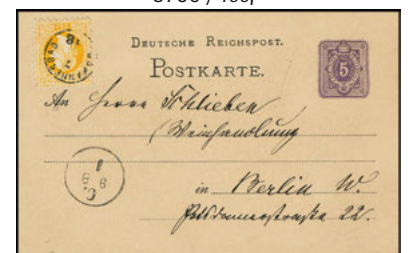 DEUTSCHE REICHSPOST.
POSTKARTE.
5
An Herrn Schlieben
(Weinhandlung
in Berlin W.
Potsdamerstraße 22.